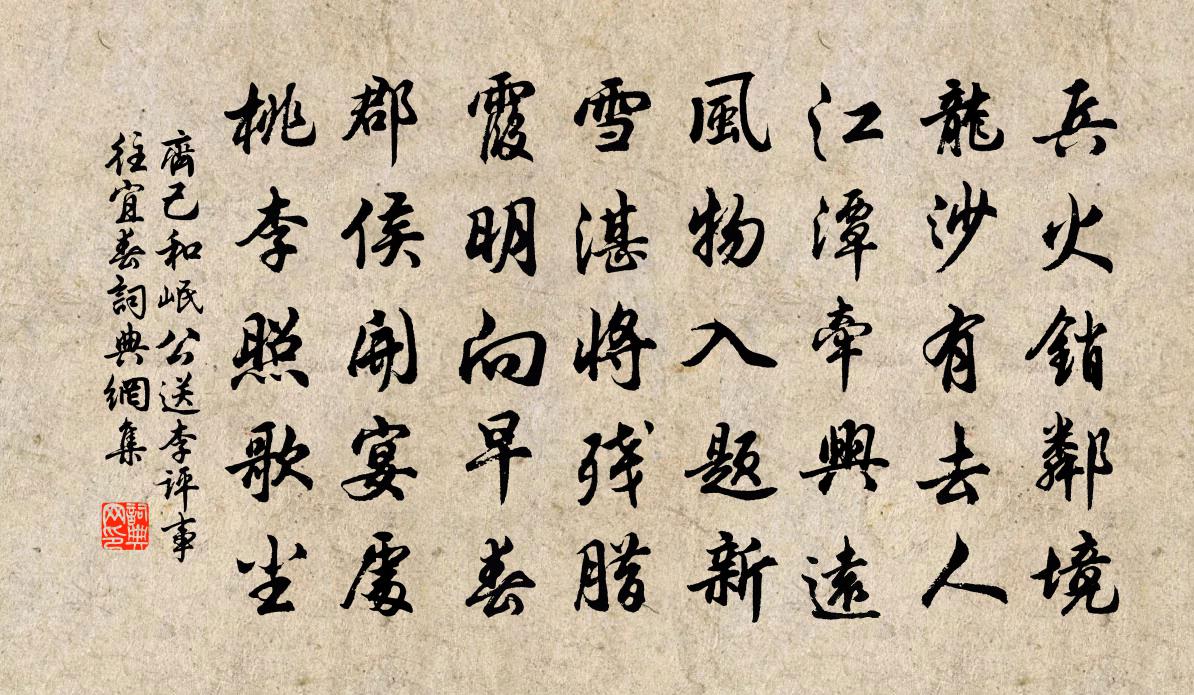 兵火銷鄰境
龍沙有去人
江潭牽興遠
風物入題新
雪湛將残腊
霞明向早春
郡侯開宴處
桃李照歌尘
齊己和岷公送李評事
往宜春詞典網集
詞典
网印